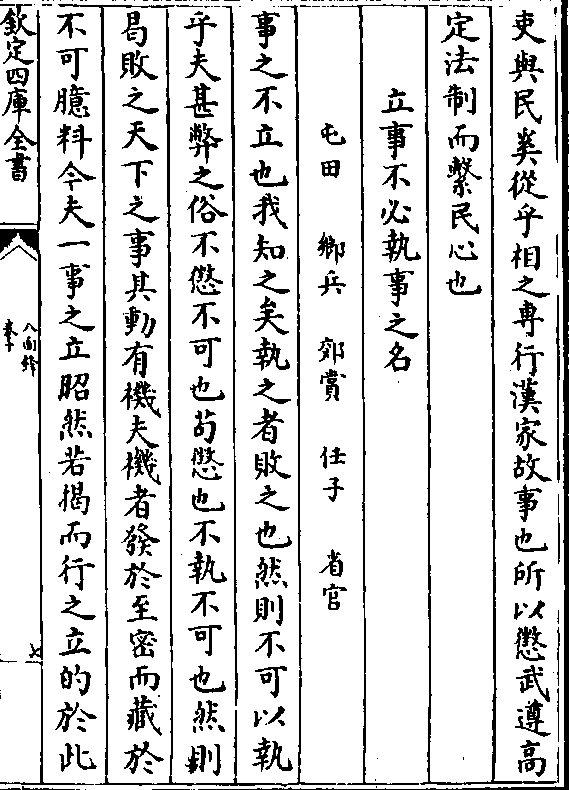 吏與民奚從乎相之専行漢家故事也所以懲武遵高
定法制而繫民心也
立事不必執事之名
屯田 鄉兵 郊賞 任子 省官
事之不立也我知之矣執之者敗之也然則不可以執
乎夫甚弊之俗不懲不可也茍懲也不執不可也然則
曷敗之天下之事其動有機夫機者發於至密而藏於
不可臆料今夫一事之立昭然若揭而行之立的於此
欽定四庫全書
八面鋒